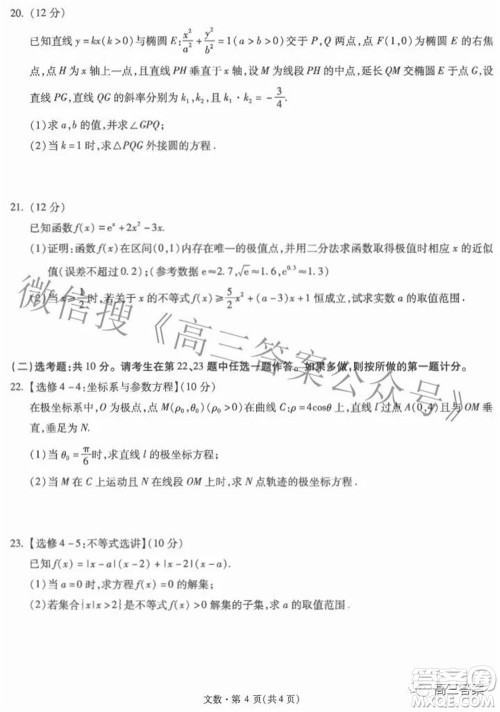 20. (12 分)
已知直线 y=kx(k>0)与椭圆 E: x²/a² + y²/b² =1(a>b>0)交于 P,Q 两点,点 F(1,0)为椭圆 E 的右焦
点,点 H 为 x 轴上一点,且直线 PH 垂直于 x 轴,设 M 为线段 PH 的中点,延长 QM 交椭圆 E 于点 G,设
直线 PG,直线 QG 的斜率分别为 k₁,k₂,且 k₁·k₂=-3/4.
(1)求 a,b 的值,并求∠GPQ;
(2)当 k=1 时,求△PQG 外接圆的方程.
21. (12 分)
已知函数 f(x)=eˣ+2x²-3x.
(1)证明:函数 f(x)在区间(0,1)内存在唯一的极值点,并用二分法求函数取得极值时相应 x 的近似
值(误差不超过 0.2);(参考数据 e≈2.7,√e≈1.6,e^0.3≈1.3)
(2)当 x≥1/2时,若关于 x 的不等式 f(x)≥5/2x²+(a-3)x+1 恒成立,试求实数 a 的取值范围.
(二)选考题:共 10 分。请考生在第 22、23 题中任选一题作答。如果多做,则按所做的第一题计分。
22. 【选修 4-4:坐标系与参数方程】(10 分)
在极坐标系中,O 为极点,点 M(ρ₀,θ₀)在曲线 C:ρ=4cosθ 上,直线 l 过点 A(0,4)且与 OM 垂
直,垂足为 N.
(1)当 θ₀=π/6时,求直线 l 的极坐标方程;
(2)当 M 在 C 上运动且 N 在线段 OM 上时,求 N 点轨迹的极坐标方程.
23. 【选修 4-5:不等式选讲】(10 分)
已知 f(x)=|x-a|(x-2)+|x-2|(x-a).
(1)当 a=0 时,求方程 f(x)=0 的解集;
(2)若集合{x|x>2}是不等式 f(x)>0 解集的子集,求 a 的取值范围.
文数·第 4 页(共 4 页)
微信搜《高三答案公众号》
高三答案
MXQE.COM